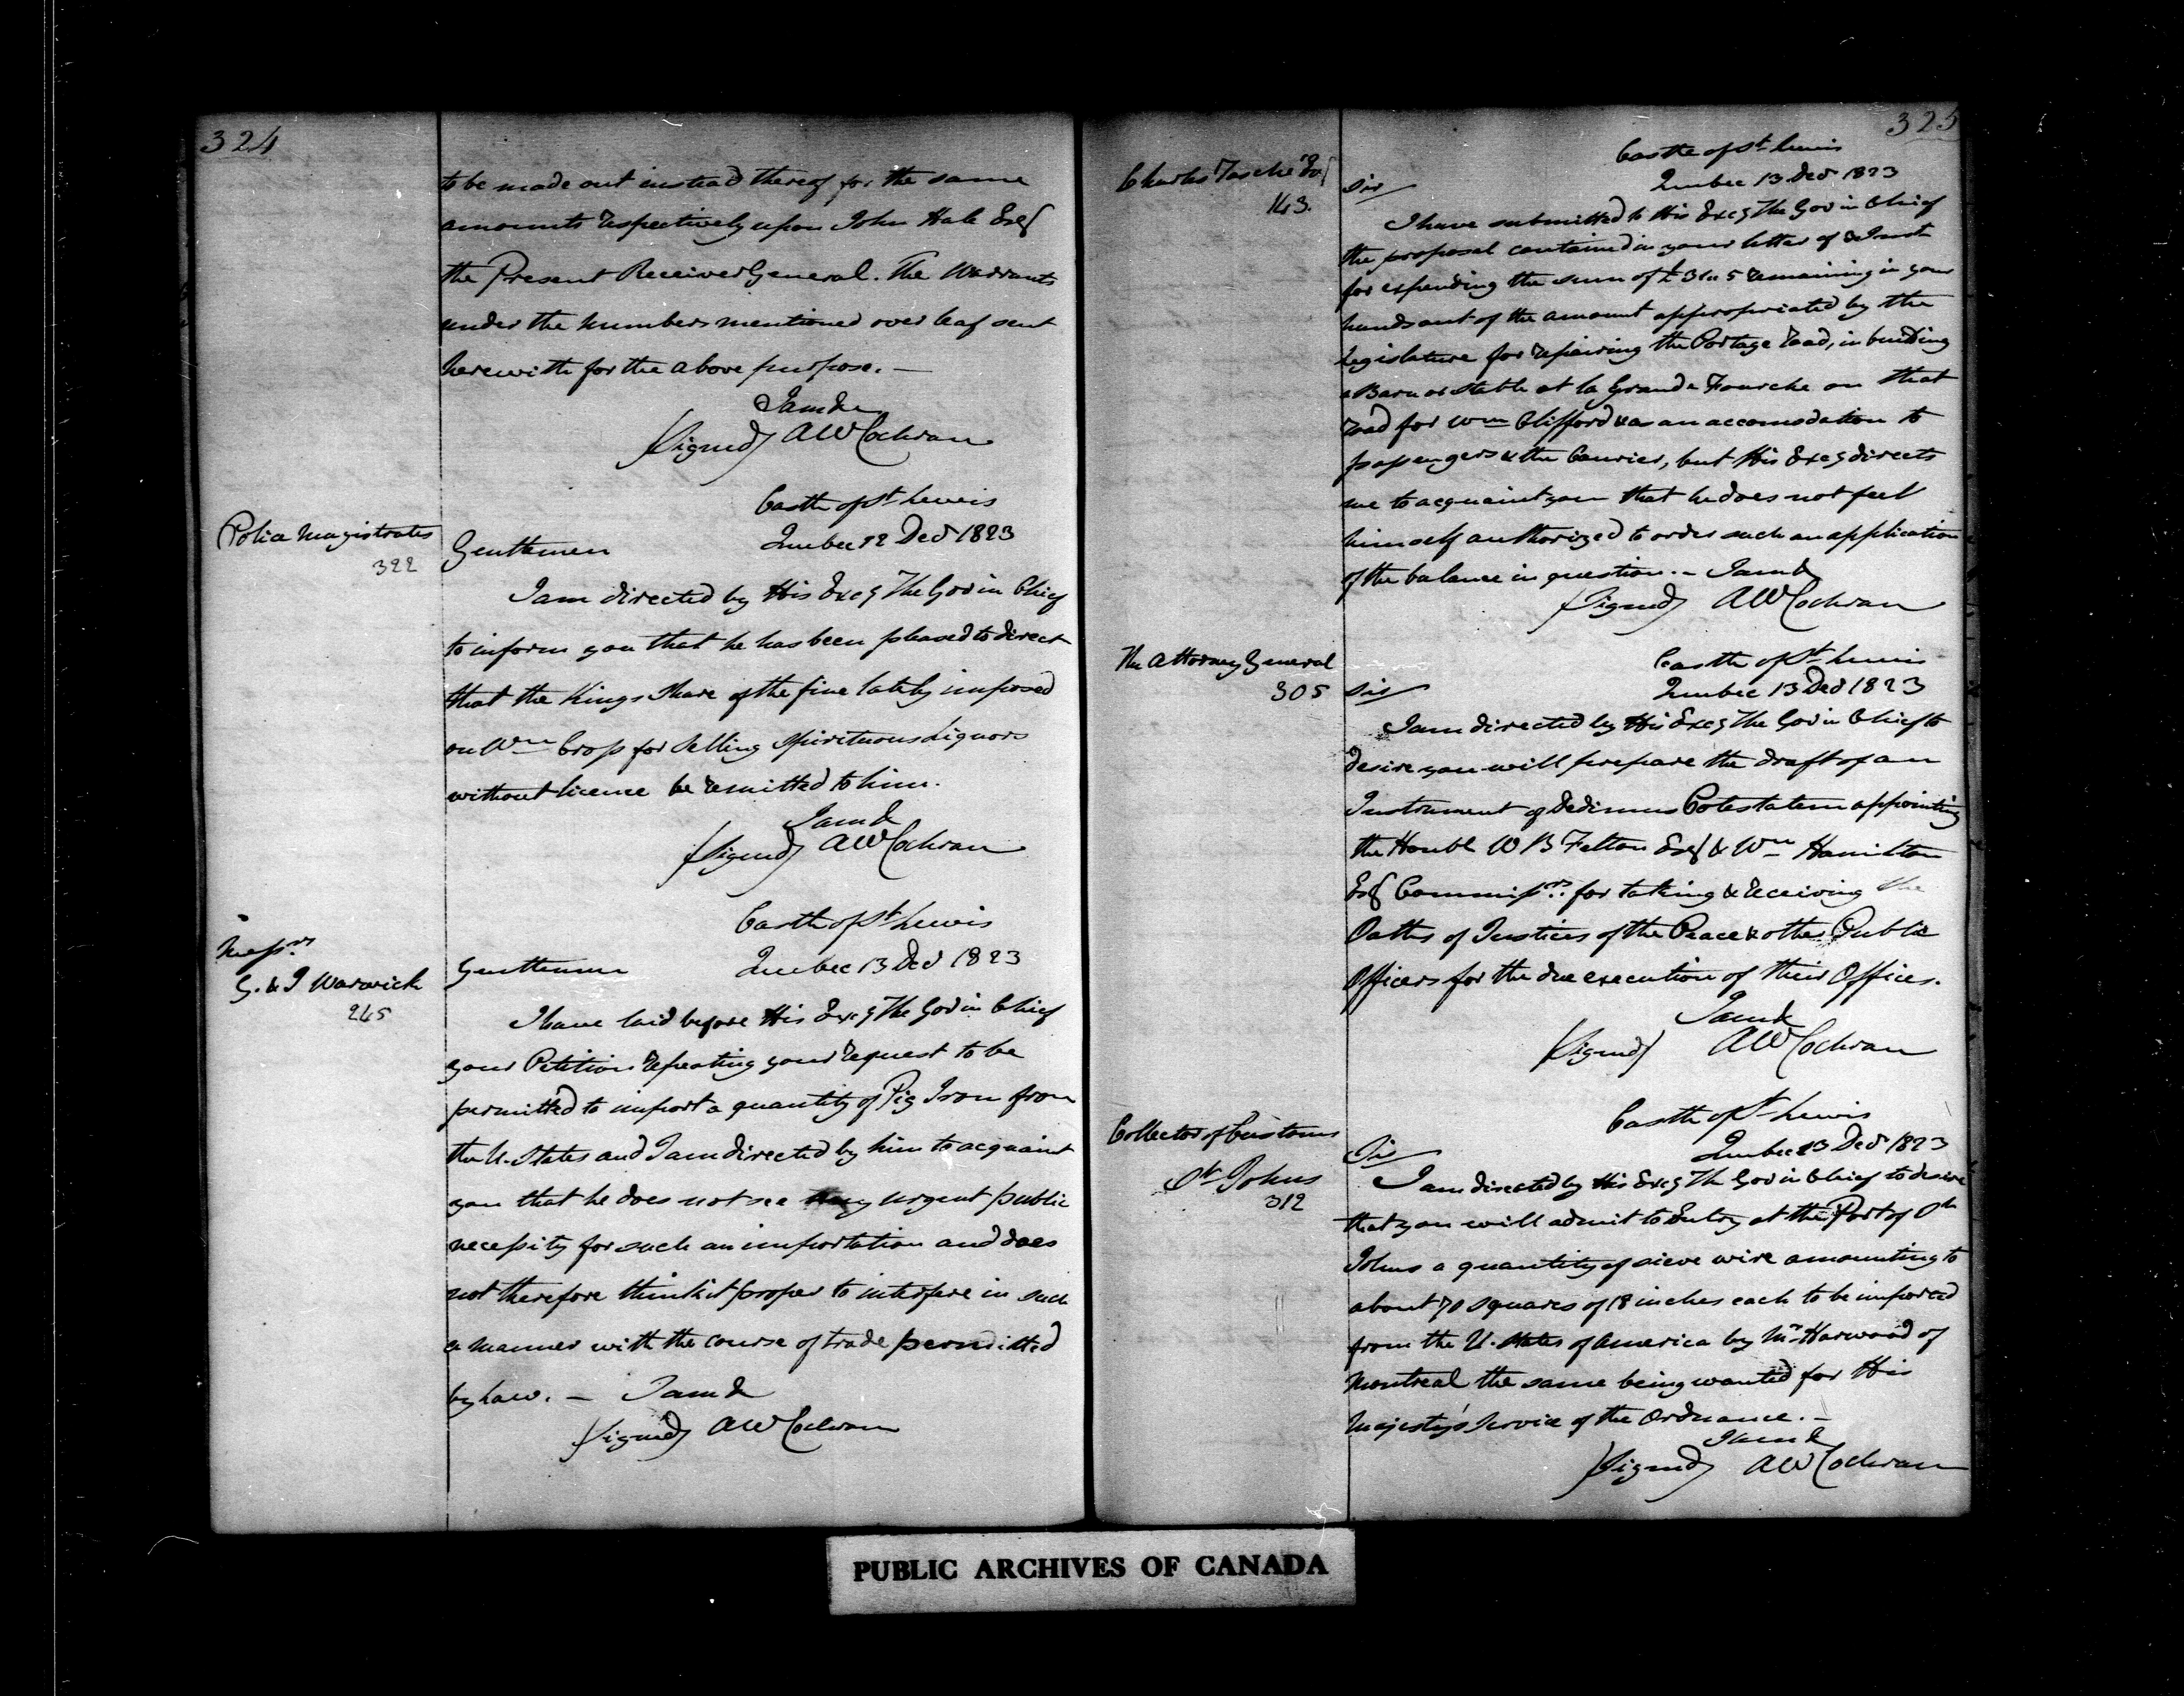 324
to be made out instead thereof for the same
amounts respectively upon John Hale Esq
the Present Receiver General. The Warrants
under the numbers mentioned over leaf sent
herewith for the above purpose. —
I am &
(Signed) AW Cochran
Castle of St Lewis
Police Magistrates
322
Quebec 12 Decr 1823
Gentlemen
I am directed by His Excy The Gov in Chief
to inform you that he has been pleased to direct
that the Kings Share of the fine lately imposed
on Wm Cross for Selling Spirituous Liquors
without licence be remitted to him.
I am &
(Signed) AW Cochran
Castle of St Lewis
Messrs
G. & J Warwick
245
Quebec 13 Decr 1823
Gentlemen
I have laid before His Excy The Gov in Chief
your Petition repeating your request to be
permitted to import a quantity of Pig Iron from
the U. States and I am directed by him to acquaint
you that he does not see any urgent public
necessity for such an importation and does
not therefore think it proper to interfere in such
a manner with the course of trade permitted
by law. — I am &
(Signed) AW Cochran
325
Castle of St Lewis
Charles Tasché Esq
143.
Quebec 13 Decr 1823
Sir
I have submitted to His Excy The Gov in Chief
the proposal contained in your letter of Inst
for expending the sum of £31.. 5 remaining in your
hands out of the amount appropriated by the
Legislature for repairing the Portage road, in building
a Barn or Stable at la Grande Fourche on that
road for Wm Clifford & as an accomodation to
passengers & the Courier, but His Excy directs
me to acquaint you that he does not feel
himself authorized to order such an application
of the balance in question. — I am &
(Signed) AW Cochran
Castle of St Lewis
The Attorney General
305
Quebec 13 Decr 1823
Sir
I am directed by His Excy The Gov in Chief to
desire you will prepare the draft of an
Instrument of Dedimus Potestatem appointing
the Honble W B Felton Esq & Wm Hamilton
Esq Commissrs. for taking & receiving the
Oaths of Justices of the Peace & other Public
Officers for the due execution of their Offices.
I am &
(Signed) AW Cochran
Castle of St Lewis
Collector of Customs
St Johns
312
Quebec 13 Decr 1823
Sir
I am directed by His Excy The Gov in Chief to desire
that you will admit to Entry at the Port of St
Johns a quantity of sieve wire amounting to
about 70 squares of 18 inches each to be imported
from the U. States of America by Mr Harwood of
Montreal the same being wanted for His
Majesty's Service of the Ordnance. —
I am &
(Signed) AW Cochran
PUBLIC ARCHIVES OF CANADA